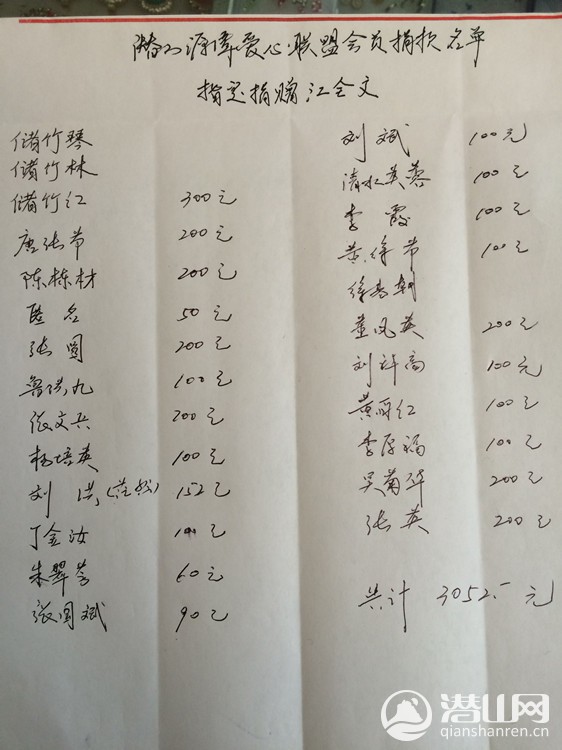 潜山源潭爱心联盟会员捐款名单
指定捐赠江全文
储竹琴
储竹林
储竹红 300元
唐张节 200元
陈栋材 200元
匿名 50元
张圆 200元
鲁洪九 100元
张文兵 200元
杨培英 100元
刘洪,(范松) 152元
丁金汝 100元
朱翠苓 60元
张国斌 90元
刘斌 100元
清水芙蓉 100元
李霞 100元
黄徐节 100元
徐
董凤英 200元
刘许高 100元
黄丽红 100元
李厚福 100元
吴菊华 200元
张英 200元
共计 3052.- 元
潜山网
qianshanren.cn